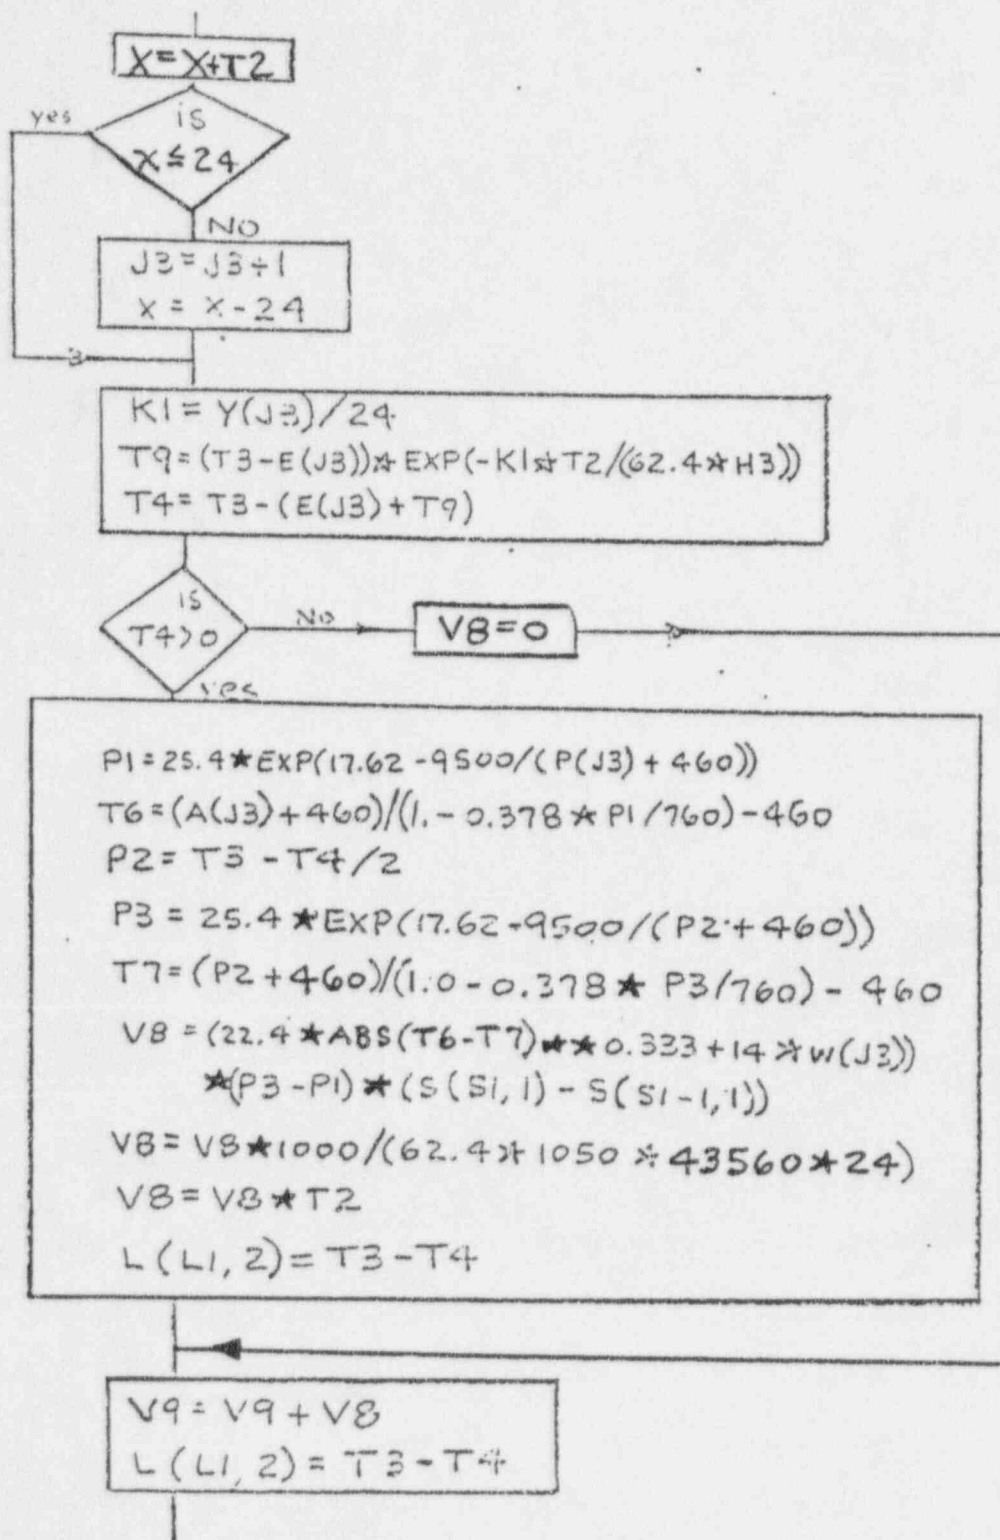 X=X+T2
yes
is
X≤24
NO
J3=J3+1
X = X-24
K1= Y(J3)/24
T9=(T3-E(J3))*EXP(-K1*T2/(62.4*H3))
T4= T3-(E(J3)+T9)
is
T4>0
No
V8=0
yes
P1=25.4*EXP(17.62-9500/(P(J3)+460))
T6=(A(J3)+460)/(1.-0.378*P1/760)-460
P2= T3-T4/2
P3 = 25.4*EXP(17.62-9500/(P2+460))
T7=(P2+460)/(1.0-0.378* P3/760)- 460
V8 =(22.4*ABS(T6-T7)**0.333+14*W(J3))
*(P3-P1)*(S(S1,1)-S(S1-1,1))
V8= V8*1000/(62.4*1050*43560*24)
V8=V8*T2
L(L1,2)= T3-T4
V9= V9+V8
L(L1,2)= T3-T4